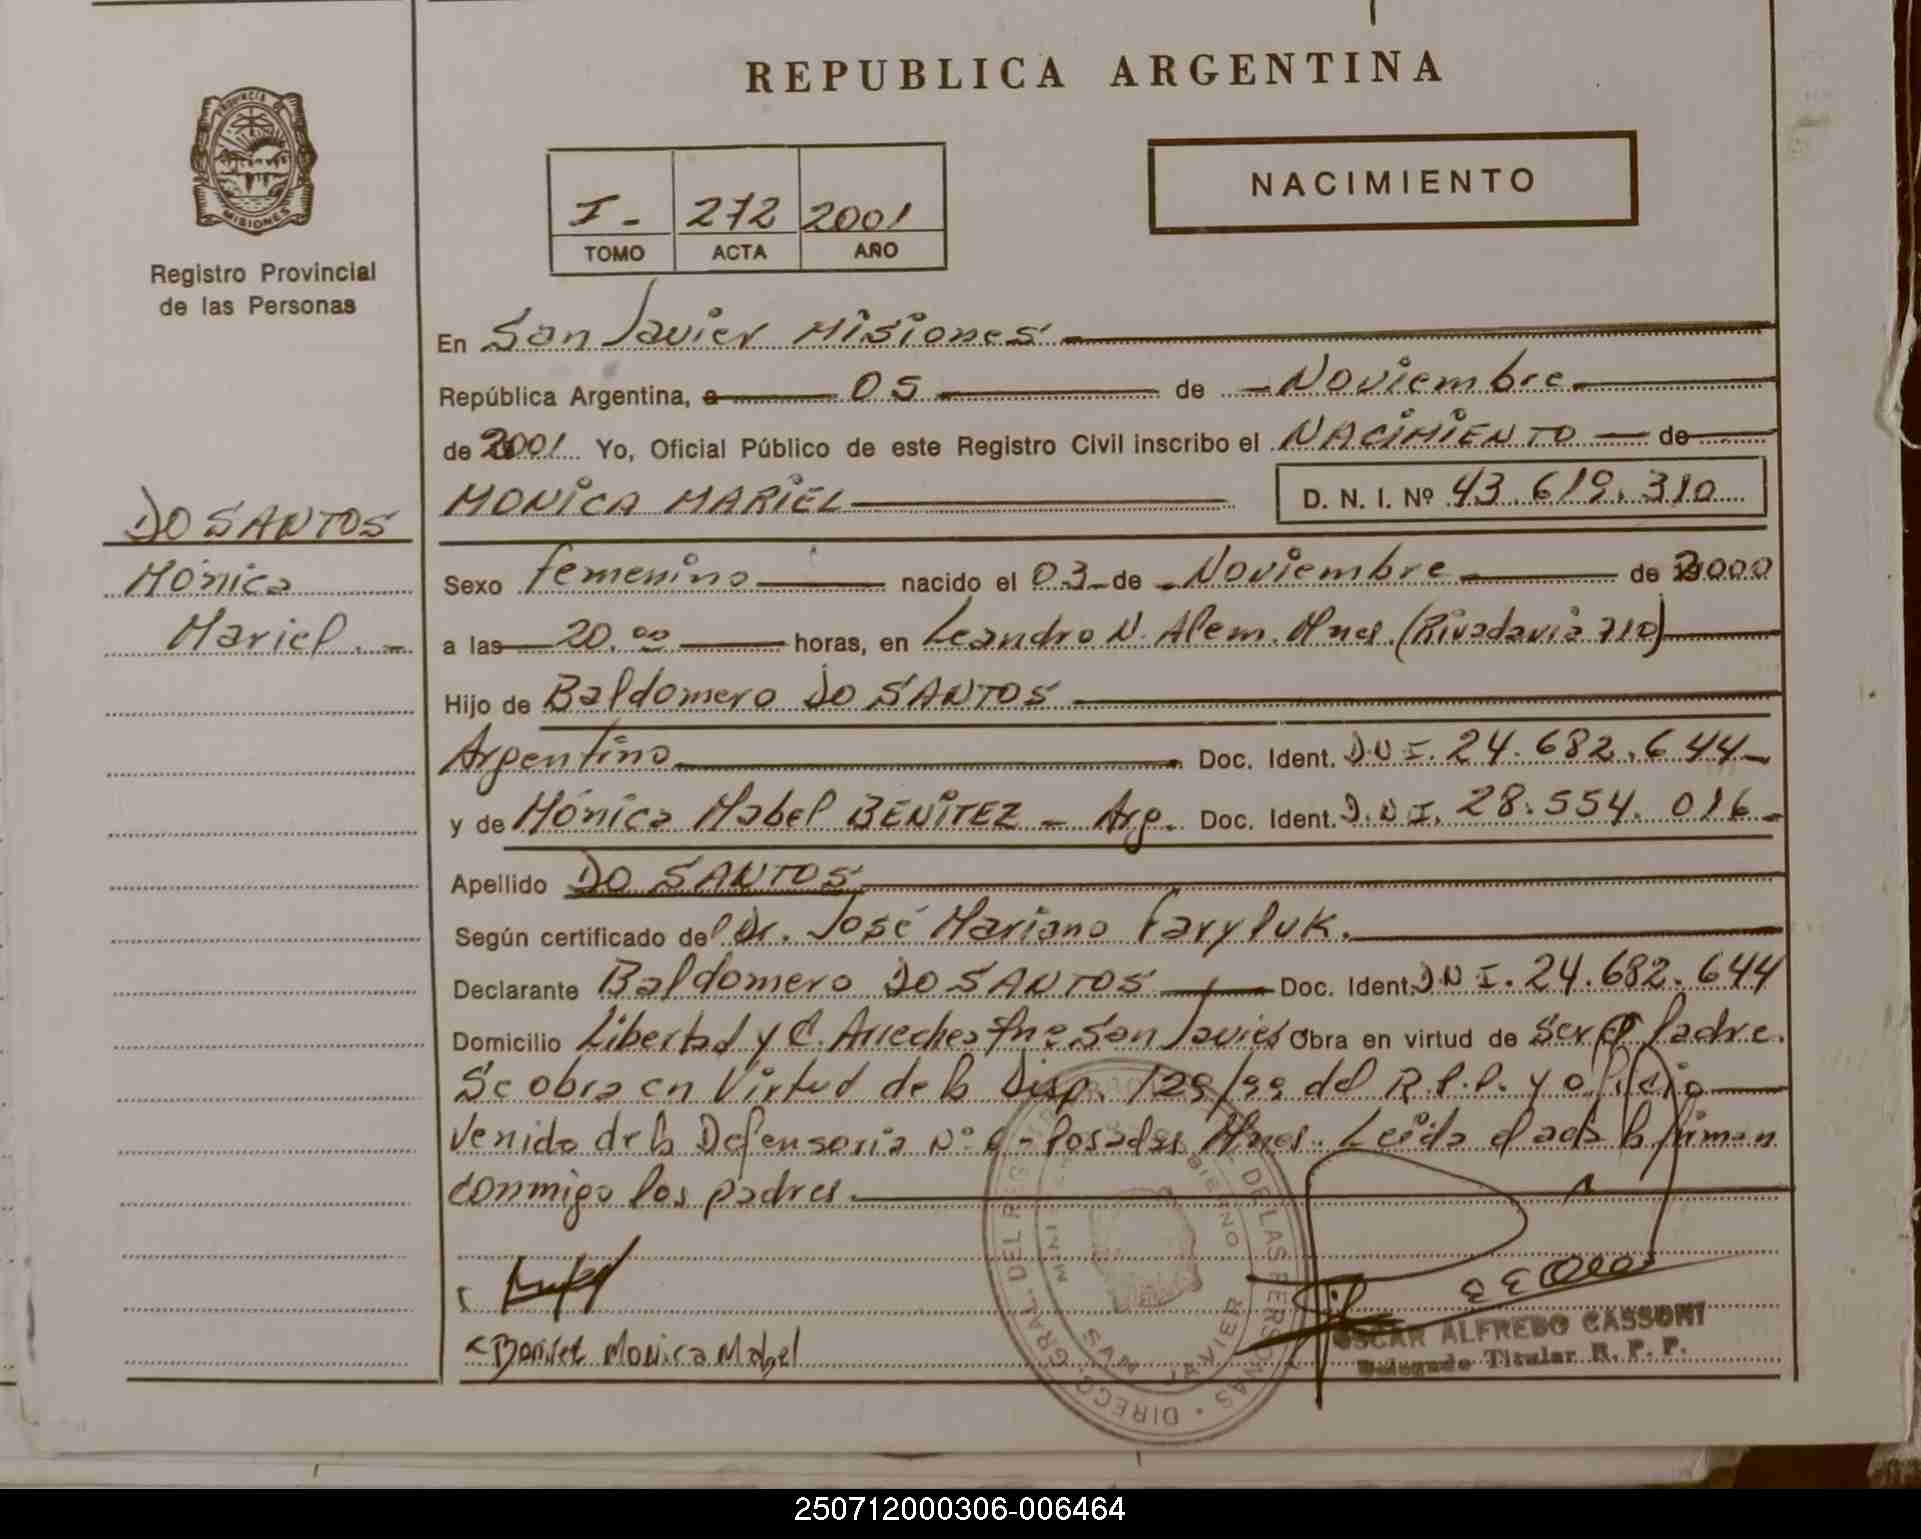 REPUBLICA ARGENTINA
PROVINCIA DE
MISIONES
Registro Provincial
de las Personas
NACIMIENTO
I - 272 2001
TOMO ACTA AÑO
En San Javier Misiones
República Argentina, a 05 de Noviembre
de 2001 Yo, Oficial Público de este Registro Civil inscribo el NACIMIENTO de
MONICA MARIEL D. N. I. Nº 43.619.310
DO SANTOS
Mónica
Mariel.-
Sexo femenino nacido el 03 de Noviembre de 2000
a las 20.00 horas, en Leandro N. Alem. Mnes. (Rivadavia 710)
Hijo de Baldomero DO SANTOS
Argentino Doc. Ident. D.N.I. 24.682.644
y de Mónica Mabel BENITEZ - Arg. Doc. Ident. D.N.I. 28.554.016-
Apellido DO SANTOS
Según certificado del Dr. José Mariano Faryluk.
Declarante Baldomero DO SANTOS Doc. Ident. DNI. 24.682.644
Domicilio Libertad y C. San Javier Obra en virtud de ser el Padre.
Se obra en Virtud de la Disp. 129/99 del R.P.P. y oficio
venido de la Defensoria Nº 6 - Posadas Mnes. Leida el acta la firman
conmigo los padres.
Monica Mabel
OSCAR ALFREDO CASSONI
Delegado Titular R. P. P.
DIRECC. GRAL. DEL REG. DE LAS PERSONAS
SAN JAVIER
250712000306-006464